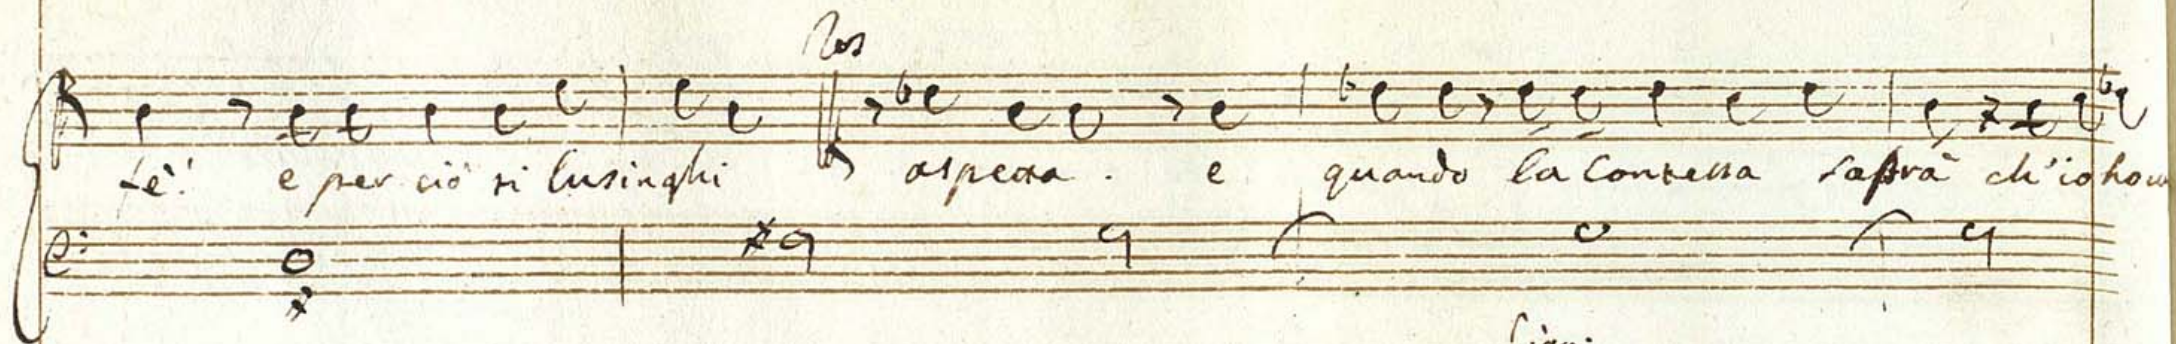 Ros
fè! e per ciò si lusinghi aspetta. e quando la Contessa saprà ch'io ho